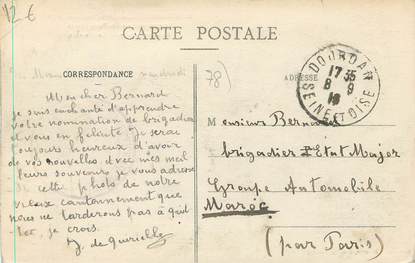 12 €
CARTE POSTALE
CORRESPONDANCE
vendredi
Mon cher Bernard
je suis enchanté d'apprendre
votre nomination de brigadier
et vous en félicite. Je serai
toujours heureux d'avoir
de vos nouvelles. Avec mes meil
leurs souvenirs je vous adresse
cette photo de notre
vieux cantonnement que
nous ne tarderons pas à quit
ter, je crois.
J. de Quirielle
78)
ADRESSE
DOURDAN
17 35
8 9
SEINE ET OISE
Monsieur Bernard
brigadier Etat Major
Groupe Automobile
Maroc
(par Paris)